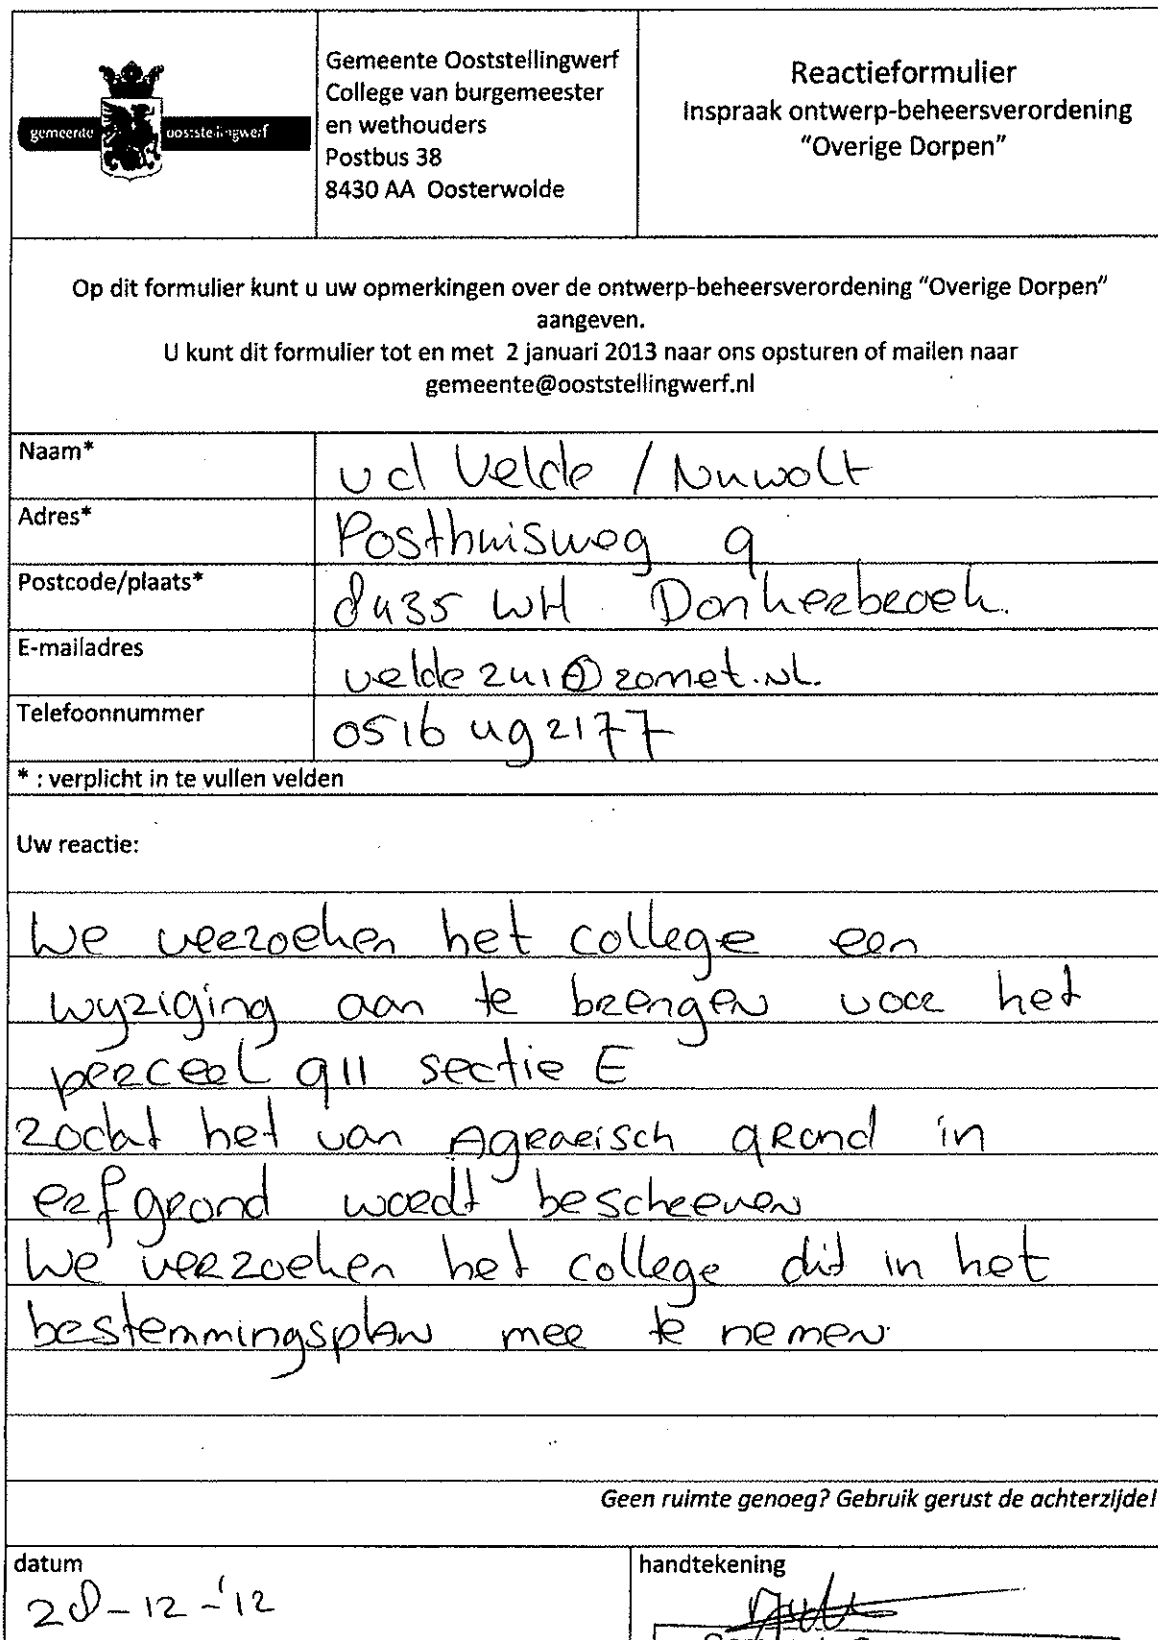 gemeente ooststellingwerf
Gemeente Ooststellingwerf
College van burgemeester
en wethouders
Postbus 38
8430 AA Oosterwolde
Reactieformulier
Inspraak ontwerp-beheersverordening
"Overige Dorpen"
Op dit formulier kunt u uw opmerkingen over de ontwerp-beheersverordening "Overige Dorpen"
aangeven.
U kunt dit formulier tot en met 2 januari 2013 naar ons opsturen of mailen naar
gemeente@ooststellingwerf.nl
Naam*
vd Velde /
Adres*
Posthuisweg 9
Postcode/plaats*
8435 WH Donkerbroek.
E-mailadres
velde241@zonnet.nl.
Telefoonnummer
0516 492177
* : verplicht in te vullen velden
Uw reactie:
We verzoeken het college een
wyziging aan te brengen voor het
perceel 911 sectie E
zodat het van Agrarisch grond in
erf grond wordt beschreven
We verzoeken het college dit in het
bestemmingsplan mee te nemen.
Geen ruimte genoeg? Gebruik gerust de achterzijde!
datum
28-12-'12
handtekening